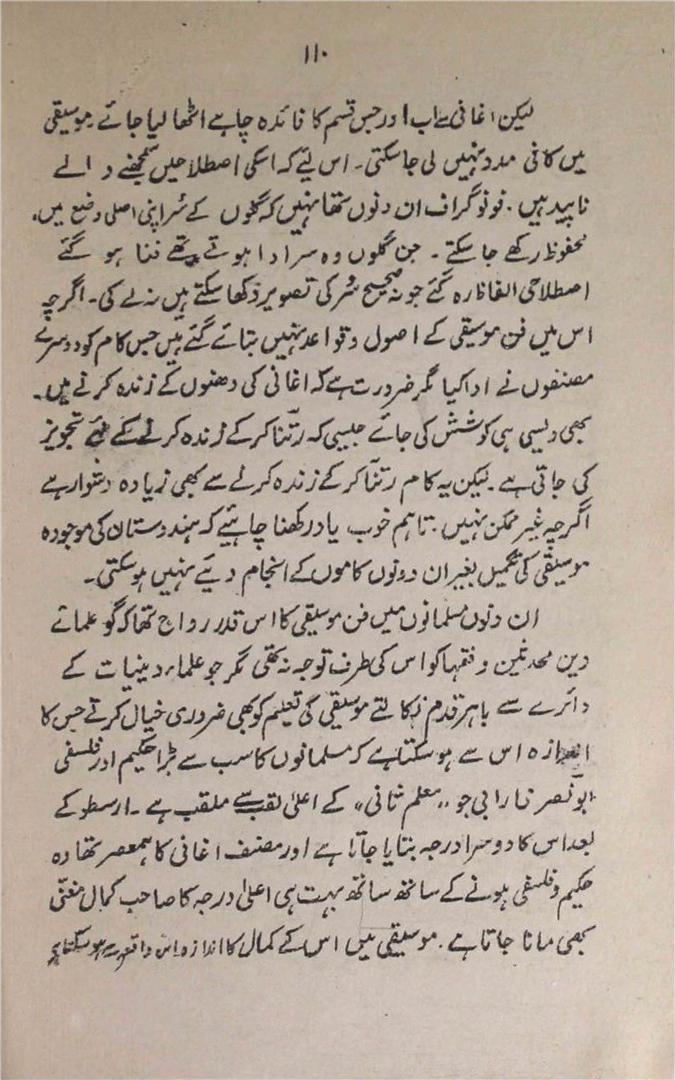 ۱۱۰
لیکن اغانی سے اب اور جس قسم کا فائدہ چاہے اٹھا لیا جائے۔ موسیقی
میں کافی مدد نہیں لی جاسکتی۔ اس لیے کہ اسکی اصطلاحیں سمجھنے والے
ناپید ہیں۔ فونوگراف ان دنوں تھا نہیں کہ گلوں کے سُر اپنی اصلی وضع میں
محفوظ رکھے جا سکتے۔ جن گلوں وہ سر ادا ہوتے تھے فنا ہو گئے
اصطلاحی الفاظ رہ گئے جو نہ صحیح سُر کی تصویر دکھا سکتے ہیں نہ لے کی۔ اگرچہ
اس میں فن موسیقی کے اصول و قواعد نہیں بتائے گئے ہیں جس کام کو دوسرے
مصنفوں نے ادا کیا مگر ضرورت ہے کہ اغانی کی دھنوں کے زندہ کرنے میں
بھی ویسی ہی کوشش کی جائے جیسی کہ رتنا کر کے زندہ کرنے کے لئے تجویز
کی جاتی ہے۔ لیکن یہ کام رتنا کر کے زندہ کرنے سے بھی زیادہ دشوار ہے
اگرچہ غیر ممکن نہیں۔ تاہم خوب یاد رکھنا چاہئیے کہ ہندوستان کی موجودہ
موسیقی کی تکمیل بغیر ان دونوں کاموں کے انجام دئیے نہیں ہو سکتی۔
ان دنوں مسلمانوں میں فن موسیقی کا اس قدر رواج تھا کہ گو علمائے
دین محدثین و فقہا کو اس کی طرف توجہ نہ تھی مگر جو علماء دینیات کے
دائرے سے باہر قدم نکالتے موسیقی کی تعلیم کو بھی ضروری خیال کرتے جس کا
اندازہ اس سے ہو سکتا ہے کہ مسلمانوں کا سب سے بڑا حکیم اور فلسفی
ابو نصر فارابی جو ،،معلم ثانی،، کے اعلیٰ لقب سے ملقب ہے۔ ارسطو کے
بعد اس کا دوسرا درجہ بتایا جاتا ہے اور مصنف اغانی کا ہمعصر تھا وہ
حکیم و فلسفی ہونے کے ساتھ ساتھ بہت ہی اعلیٰ درجہ کا صاحب کمال مغنّی
بھی مانا جاتا ہے۔ موسیقی میں اس کے کمال کا اندازہ اس واقعہ سے ہو سکتا ہے